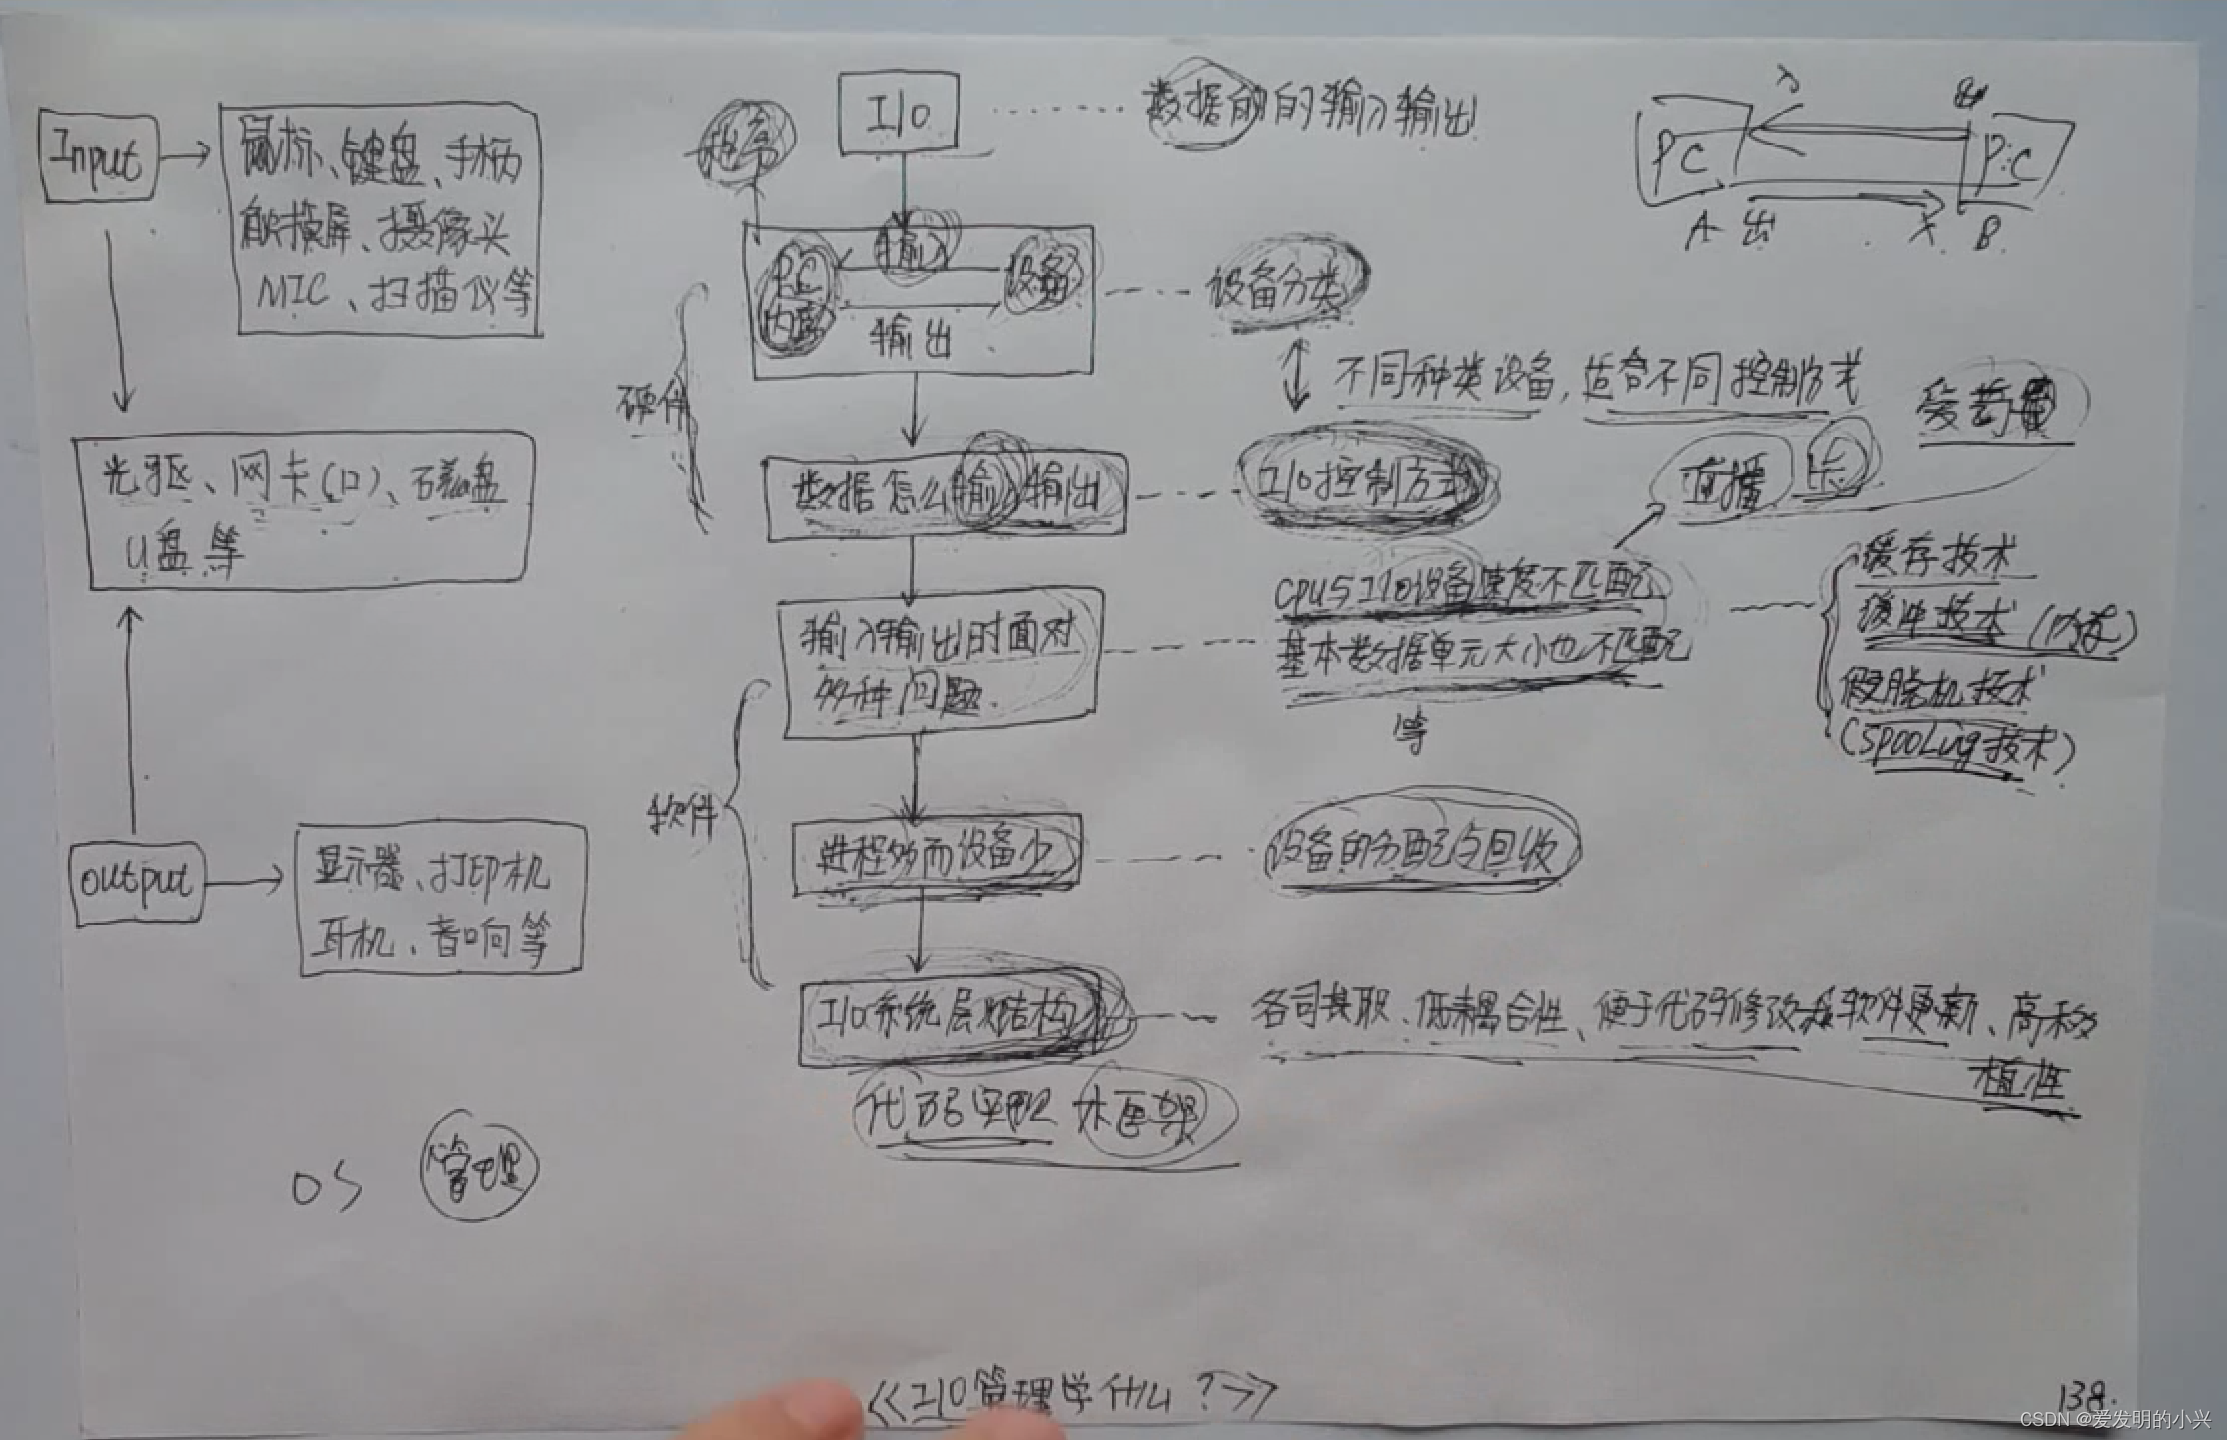 Input
鼠标、键盘、手柄
触摸屏、摄像头
MIC、扫描仪等
光驱、网卡(口)、磁盘
U盘等
output
显示器、打印机
耳机、音响等
OS 管理
I/O
数据的的输入输出
输入
PC
内存
设备
输出
设备分类
硬件
不同种类设备,适合不同控制方式
数据怎么输入输出
I/O控制方式
直播 卡
CPU与I/O设备速度不匹配
输入输出时面对
多种问题.
基本数据单元大小也不匹配
等
缓存技术
缓冲技术
假脱机技术
(SPOOLing技术)
软件
进程多而设备少
设备的分配与回收
I/O系统层次结构
各司其职、低耦合性、便于代码修改及软件更新、高移
植性
代码实现
PC
PC
A 出
入 B
《I/O管理学什么?→》
138.
CSDN @爱发明的小兴